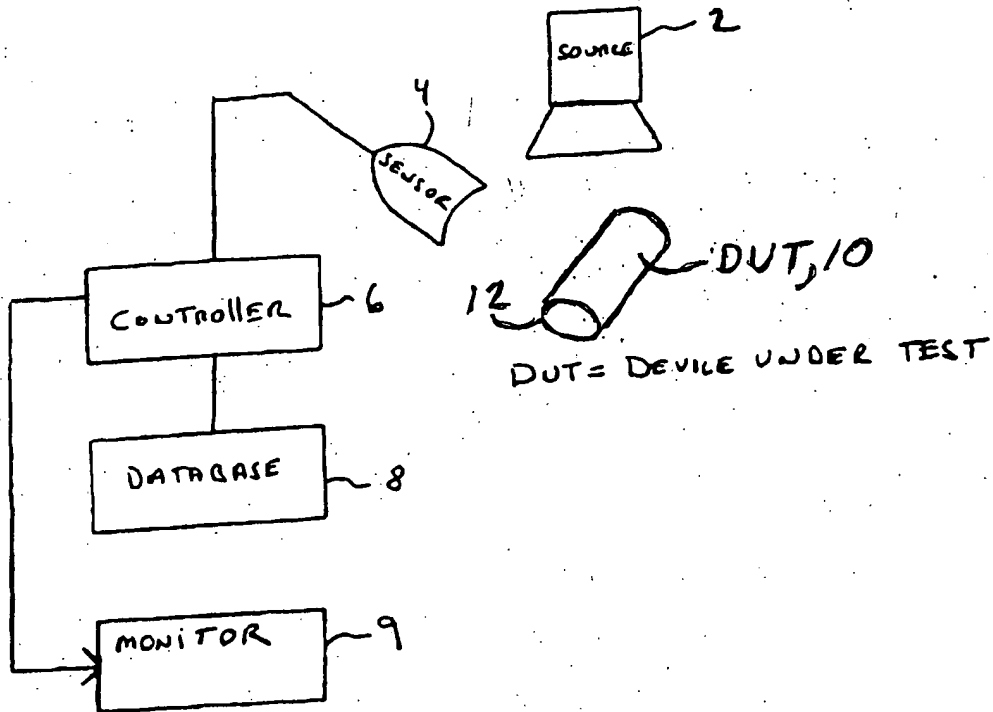 2
SOURCE
4
SENSOR
DUT, 10
CONTROLLER
6
12
DUT = DEVICE UNDER TEST
DATABASE
8
MONITOR
9